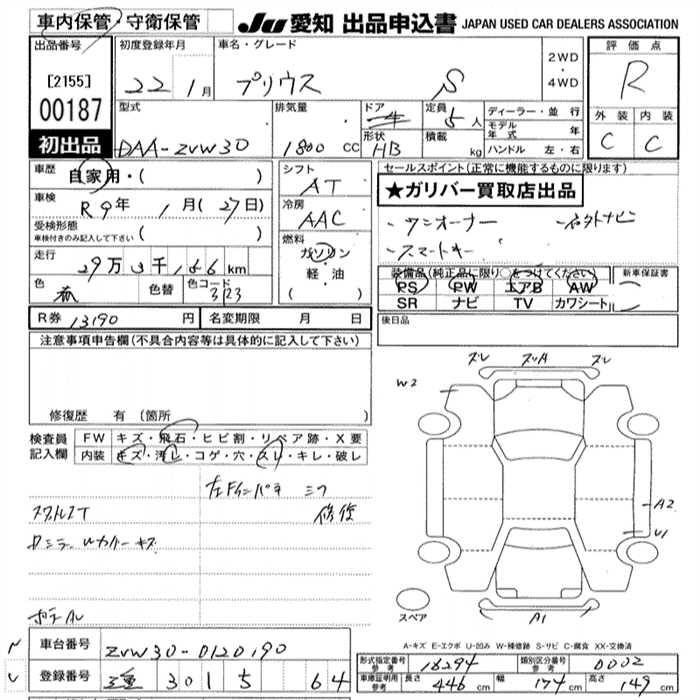 車内保管・守衛保管 JU 愛知 出品申込書 JAPAN USED CAR DEALERS ASSOCIATION
出品番号 初度登録年月 車名・グレード 2WD・4WD 評価点
[2155] 22 1月 プリウス S R
00187 型式 排気量 ドア 定員 5人 ディーラー・並行 外装 内装
モデル年式 年
初出品 DAA-ZVW30 1800cc 形状 HB 積載 kg ハンドル 左・右 C C
車歴 自家用・( ) シフト AT セールスポイント(正常に機能するものに限ります)
★ガリバー買取店出品
車検 R9年 1月(27日) 冷房 AAC ・ワンオーナー
受検形態 車検付きのみ記入して下さい ( ) ・スマートキー
走行 29万3千166km 燃料 ガソリン 軽・油 ( )
装備品(純正品に限り○をつけてください) 新車保証書
色 色替 色コード 3R3 PS PW エアB AW
SR ナビ TV カワシート
R券 13190円 名変期限 月 日 後日品
注意事項申告欄(不具合内容等は具体的に記入して下さい)
ズレ ズレA ズレ
W2
修復歴 有 (箇所
検査員記入欄 FW キズ・飛石・ヒビ割・リペア跡・X要
内装 キズ・汚レ・コゲ・穴・スレ・キレ・破レ
修復
A2
U1
スペア A1
車台番号 ZVW30-0120190
A-キズ E-エクボ U-凹み W-補修跡 S-サビ C-腐食 XX-交換済
形式指定番号 参考 16294 類別区分番号 参考 0002
登録番号 301 5 64 車庫証明用 参考 長さ 446cm 幅 174cm 高さ 149cm